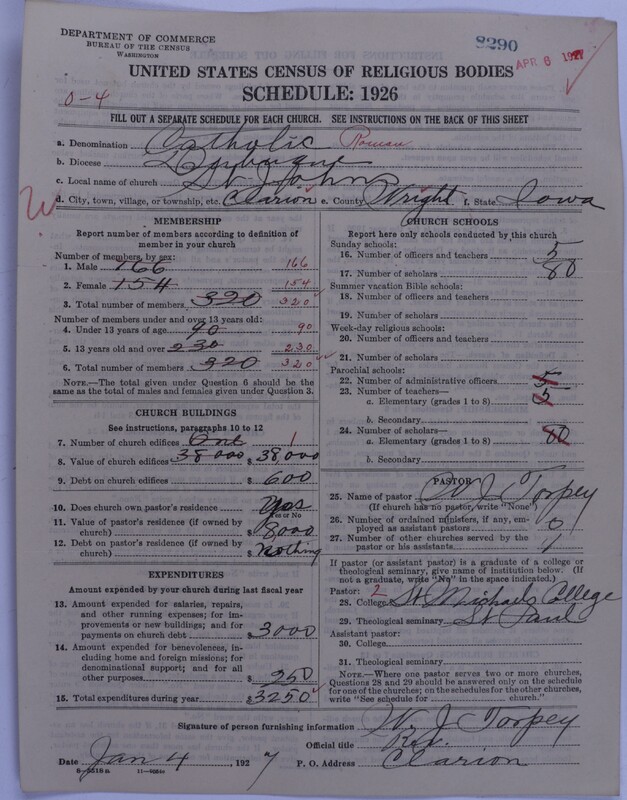 DEPARTMENT OF COMMERCE
BUREAU OF THE CENSUS
WASHINGTON
8290
APR 6 1927
UNITED STATES CENSUS OF RELIGIOUS BODIES
SCHEDULE: 1926
0-4
FILL OUT A SEPARATE SCHEDULE FOR EACH CHURCH. SEE INSTRUCTIONS ON THE BACK OF THIS SHEET
a. Denomination Catholic Roman
b. Diocese Dubuque
c. Local name of church St Johns
d. City, town, village, or township, etc. Clarion e. County Wright f. State Iowa
MEMBERSHIP
Report number of members according to definition of
member in your church
Number of members, by sex:
1. Male 166 166
2. Female 154 154
3. Total number of members 320 320
Number of members under and over 13 years old:
4. Under 13 years of age 90 90
5. 13 years old and over 230 230
6. Total number of members 320 320
NOTE.—The total given under Question 6 should be
same as the total of males and females given under Question 3.
CHURCH BUILDINGS
See instructions, paragraphs 10 to 12
7. Number of church edifices One 1
8. Value of church edifices 38000 $ 38000
9. Debt on church edifices $ 600
10. Does church own pastor's residence Yes
Yes or No
11. Value of pastor's residence (if owned by
church) $ 8000
12. Debt on pastor's residence (if owned by
church) $ Nothing
EXPENDITURES
Amount expended by your church during last fiscal year
13. Amount expended for salaries, repairs,
and other running expenses; for im-
provements or new buildings; and for
payments on church debt $ 3000
14. Amount expended for benevolences, in-
cluding home and foreign missions; for
denominational support; and for all
other purposes $ 250
15. Total expenditures during year $ 3250
CHURCH SCHOOLS
Report here only schools conducted by this church
Sunday schools:
16. Number of officers and teachers 5
17. Number of scholars 80
Summer vacation Bible schools:
18. Number of officers and teachers
19. Number of scholars
Week-day religious schools:
20. Number of officers and teachers
21. Number of scholars
Parochial schools:
22. Number of administrative officers 5
23. Number of teachers—
a. Elementary (grades 1 to 8) 5
b. Secondary
24. Number of scholars—
a. Elementary (grades 1 to 8) 80
b. Secondary
PASTOR
25. Name of pastor W J Torpey
(If church has no pastor, write "None")
26. Number of ordained ministers, if any, em-
ployed as assistant pastors 0
27. Number of other churches served by the
pastor or his assistants 1
If pastor (or assistant pastor) is a graduate of a college or
theological seminary, give name of institution below. (If
not a graduate, write "No" in the space indicated.)
Pastor: 2
28. College St Michaels College
29. Theological seminary St Paul
Assistant pastor:
30. College
31. Theological seminary
NOTE.—Where one pastor serves two or more churches,
Questions 28 and 29 should be answered only on the schedule
for one of the churches; on the schedules for the other churches,
write "See schedule for church."
Signature of person furnishing information W. J Torpey
Official title Rev.
Date Jan 4, 1927 P. O. Address Clarion